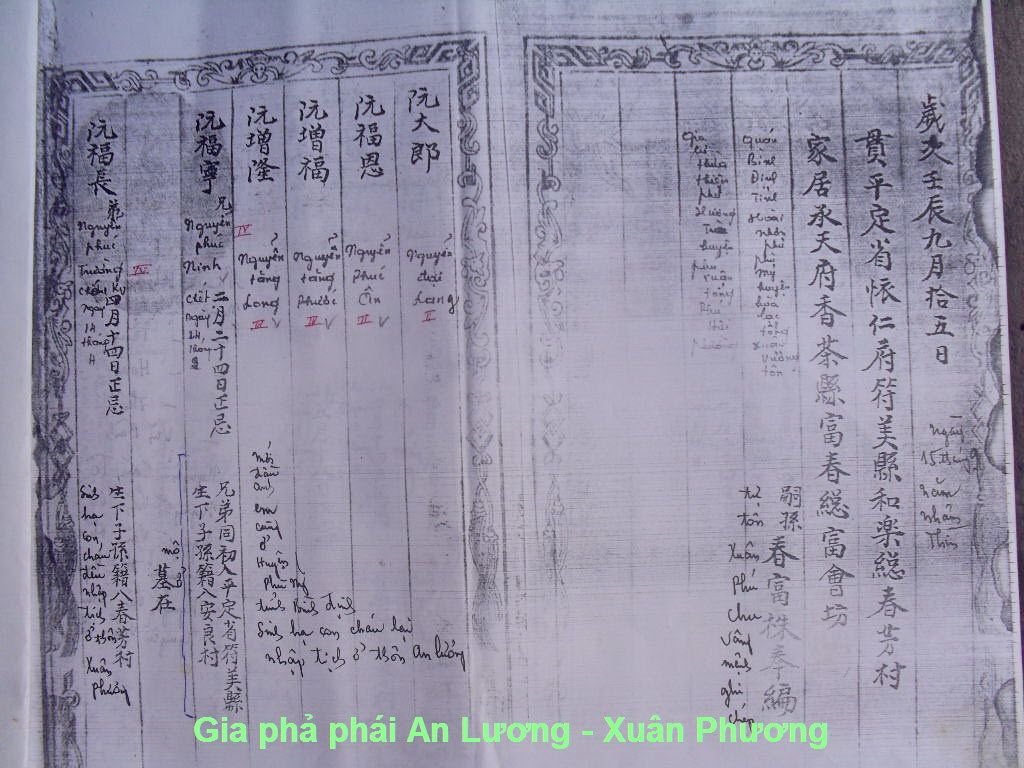 歲次壬辰九月拾五日
Ngày 15 tháng 9 năm Nhâm Thìn
貫平定省怀仁府符美縣和楽総春芳村
家居承天府香茶縣富春総富會坊
quán Bình Định tỉnh Hoài nhơn phủ phù mỹ huyện hòa lạc tổng xuân phương thôn
嗣孫春富株奉編
tự tôn Xuân Phú chu vâng mệnh ghi chép
Gia cư thừa thiên phủ Hương Trà huyện phú xuân tổng Phú Hội phường
阮大郎
Nguyễn đại Lang
II
阮福恩
Nguyễn Phúc Ân
III
阮增福
Nguyễn tăng Phước
IV
阮增隆
Nguyễn tăng Long
IV
阮福寧
兄
Nguyễn phúc Ninh
IV
二月二十四日正忌
chết ngày 24, tháng 2
兄弟同初入平定省符美縣
生下子孫籍入安良村
mới đầu anh em cùng ở Huyện Phù Mỹ tỉnh Bình định
Sinh hạ con cháu lai nhập tịch ở thôn An lương
墓在
mộ ở
阮福長
弟
Nguyễn phúc Trường
IV
四月十四日正忌
chánh kỵ ngày 14 tháng 4
生下子孫籍入春芳村
Sinh hạ con cháu đều nhập tịch ở thôn Xuân Phương
Gia phả phái An Lương - Xuân Phương